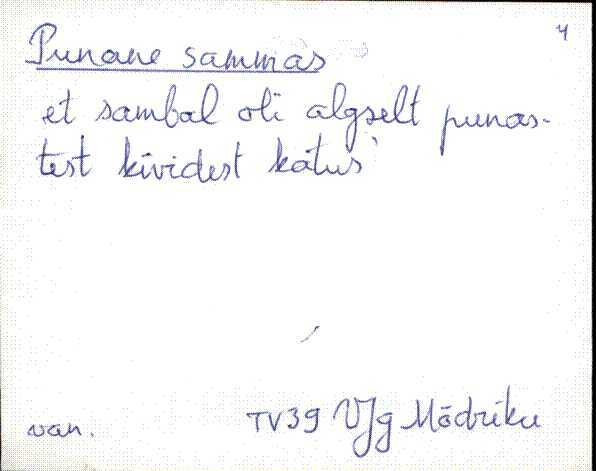 4
Punane sammas
et sambal oli algselt punas-
test kividest katus
van. TV39 VJg Mõdriku